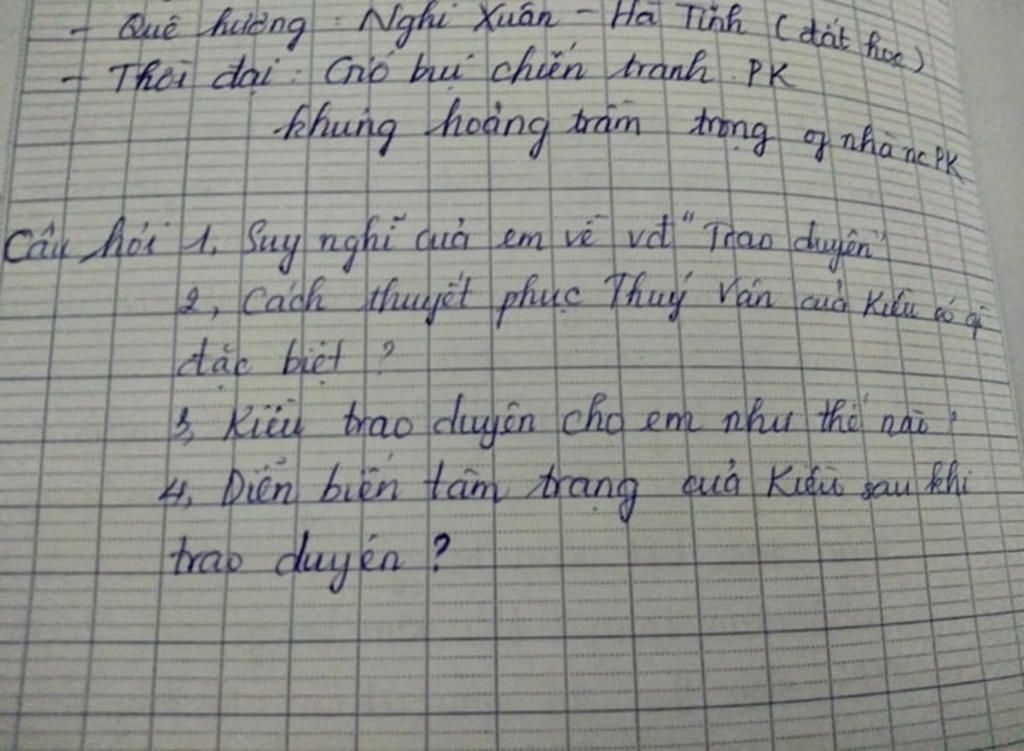 - Quê hương : Nghi Xuân - Hà Tĩnh (đất học)
- Thời đại : Gió bụi chiến tranh PK
khủng hoảng trầm trọng of nhà nc PK
Câu hỏi 1, Suy nghĩ của em về vđ "Trao duyên"
2, Cách thuyết phục Thuý Vân của Kiều có gì
đặc biệt ?
3, Kiều trao duyên cho em như thế nào ?
4, Diễn biến tâm trạng của Kiều sau khi
trao duyên ?